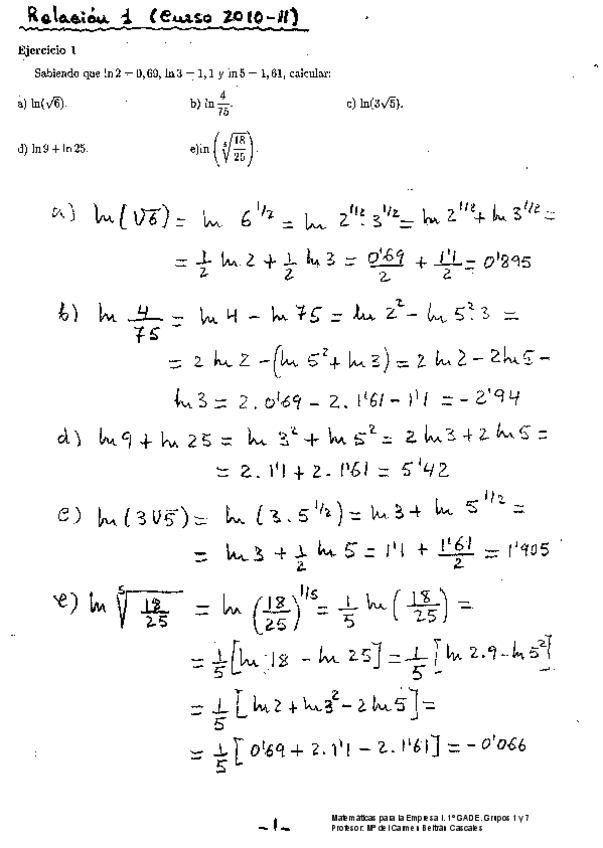 Relación 1 (Curso 2010-11)
Ejercicio 1
Sabiendo que ln 2 = 0,69, ln 3 = 1,1 y ln 5 = 1,61, calcular:
a) ln(√6). b) ln 4/75. c) ln(3√5).
d) ln 9 + ln 25. e) ln (⁵√(18/25)).
a) ln(√6) = ln 6^1/2 = ln 2^1/2 · 3^1/2 = ln 2^1/2 + ln 3^1/2 =
= 1/2 ln 2 + 1/2 ln 3 = 0'69/2 + 1'1/2 = 0'895
b) ln 4/75 = ln 4 - ln 75 = ln 2² - ln 5²·3 =
= 2 ln 2 - (ln 5² + ln 3) = 2 ln 2 - 2 ln 5 -
ln 3 = 2 · 0'69 - 2 · 1'61 - 1'1 = - 2'94
d) ln 9 + ln 25 = ln 3² + ln 5² = 2 ln 3 + 2 ln 5 =
= 2 · 1'1 + 2 · 1'61 = 5'42
c) ln (3√5) = ln (3 · 5^1/2) = ln 3 + ln 5^1/2 =
= ln 3 + 1/2 ln 5 = 1'1 + 1'61/2 = 1'905
e) ln ⁵√(18/25) = ln (18/25)^1/5 = 1/5 ln (18/25) =
= 1/5 [ln 18 - ln 25] = 1/5 [ln 2.9 - ln 5²]
= 1/5 [ln 2 + ln 3² - 2 ln 5] =
= 1/5 [0'69 + 2 · 1'1 - 2 · 1'61] = - 0'066
Matemáticas para la Empresa I. 1º GADE. Grupos 1 y 7
Profesor: Mª del Carmen Beltrán Cascales
-1-